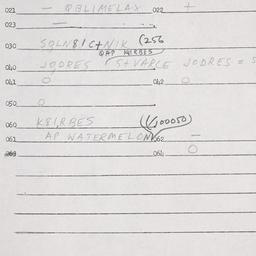 021 — QBLIMELAX 022 +
023 —
030 SQLN81C+N1K (256
QAP K8IRBES
040 JODRES S+VAPLE JODRES =
041 O 042 O
050 O
060 K8IRBES (100050)
061 AP WATERMELON 062 —
063 064 O